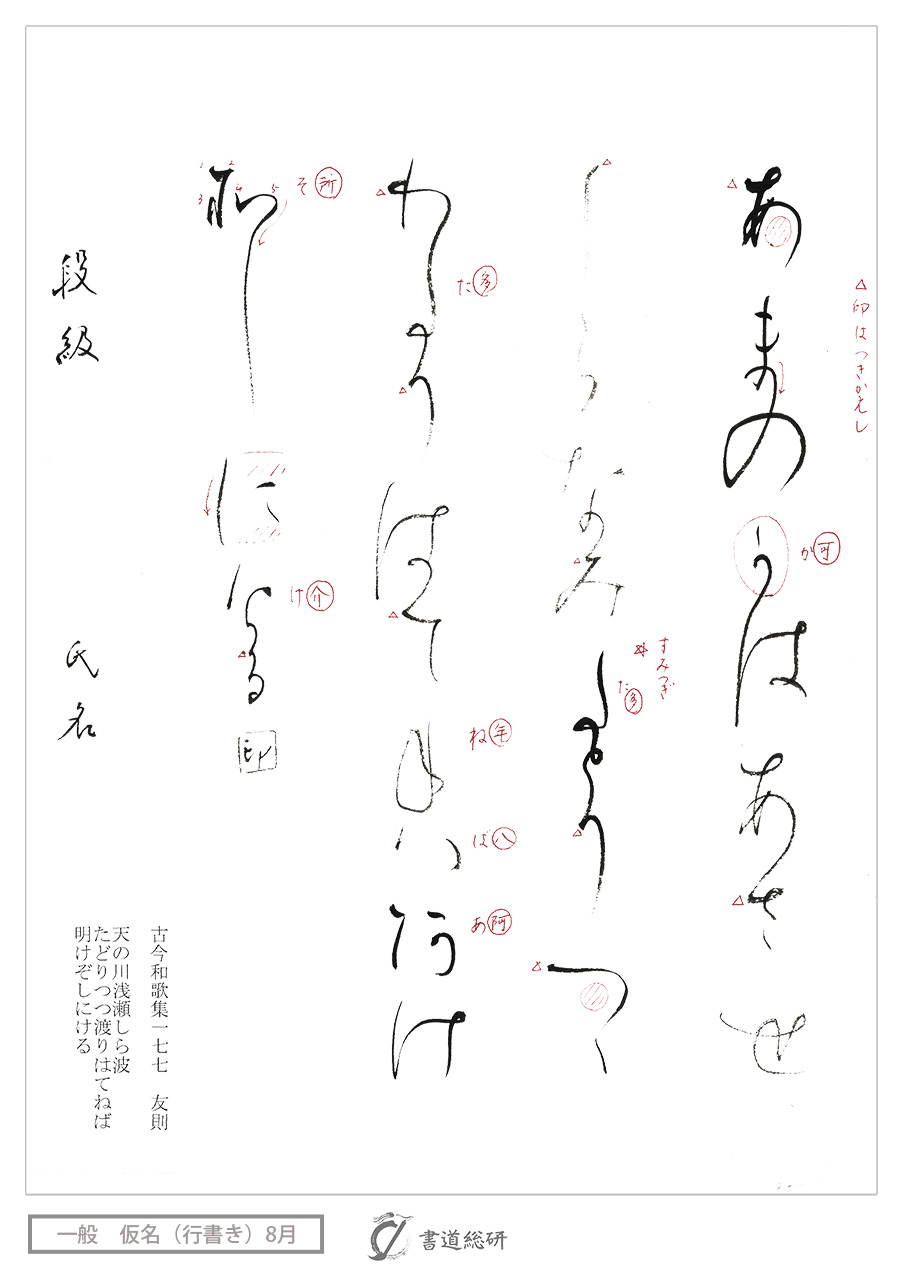 △印はつきかえし
あまの可はあさせ
か 可
しらなみ多とりつゝ
すみつぎ
た 多
わ多りはて年八阿け
た 多
ね 年
ば 八
あ 阿
所しに介る
そ 所
け 介
1 2 3 4 5
印
段級 氏名
古今和歌集一七七 友則
天の川浅瀬しら波
たどりつつ渡りはてねば
明けぞしにける
一般 仮名(行書き)8月
書道総研